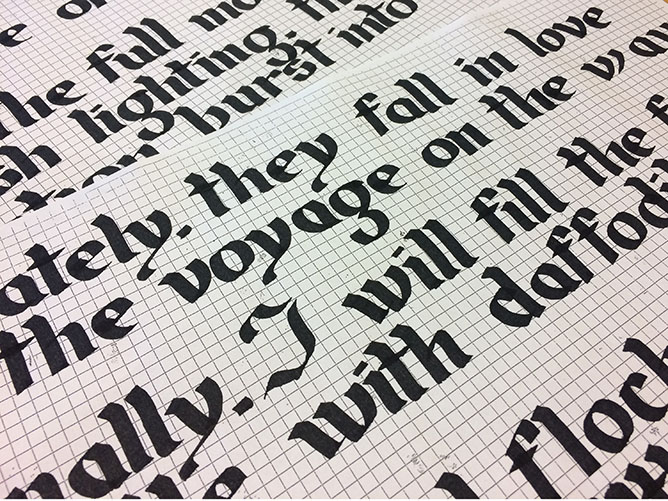 the full
lighting. th
burst into
ately. they fall in love
the voyage on the
nally. I will fill the
with daffodi
floch